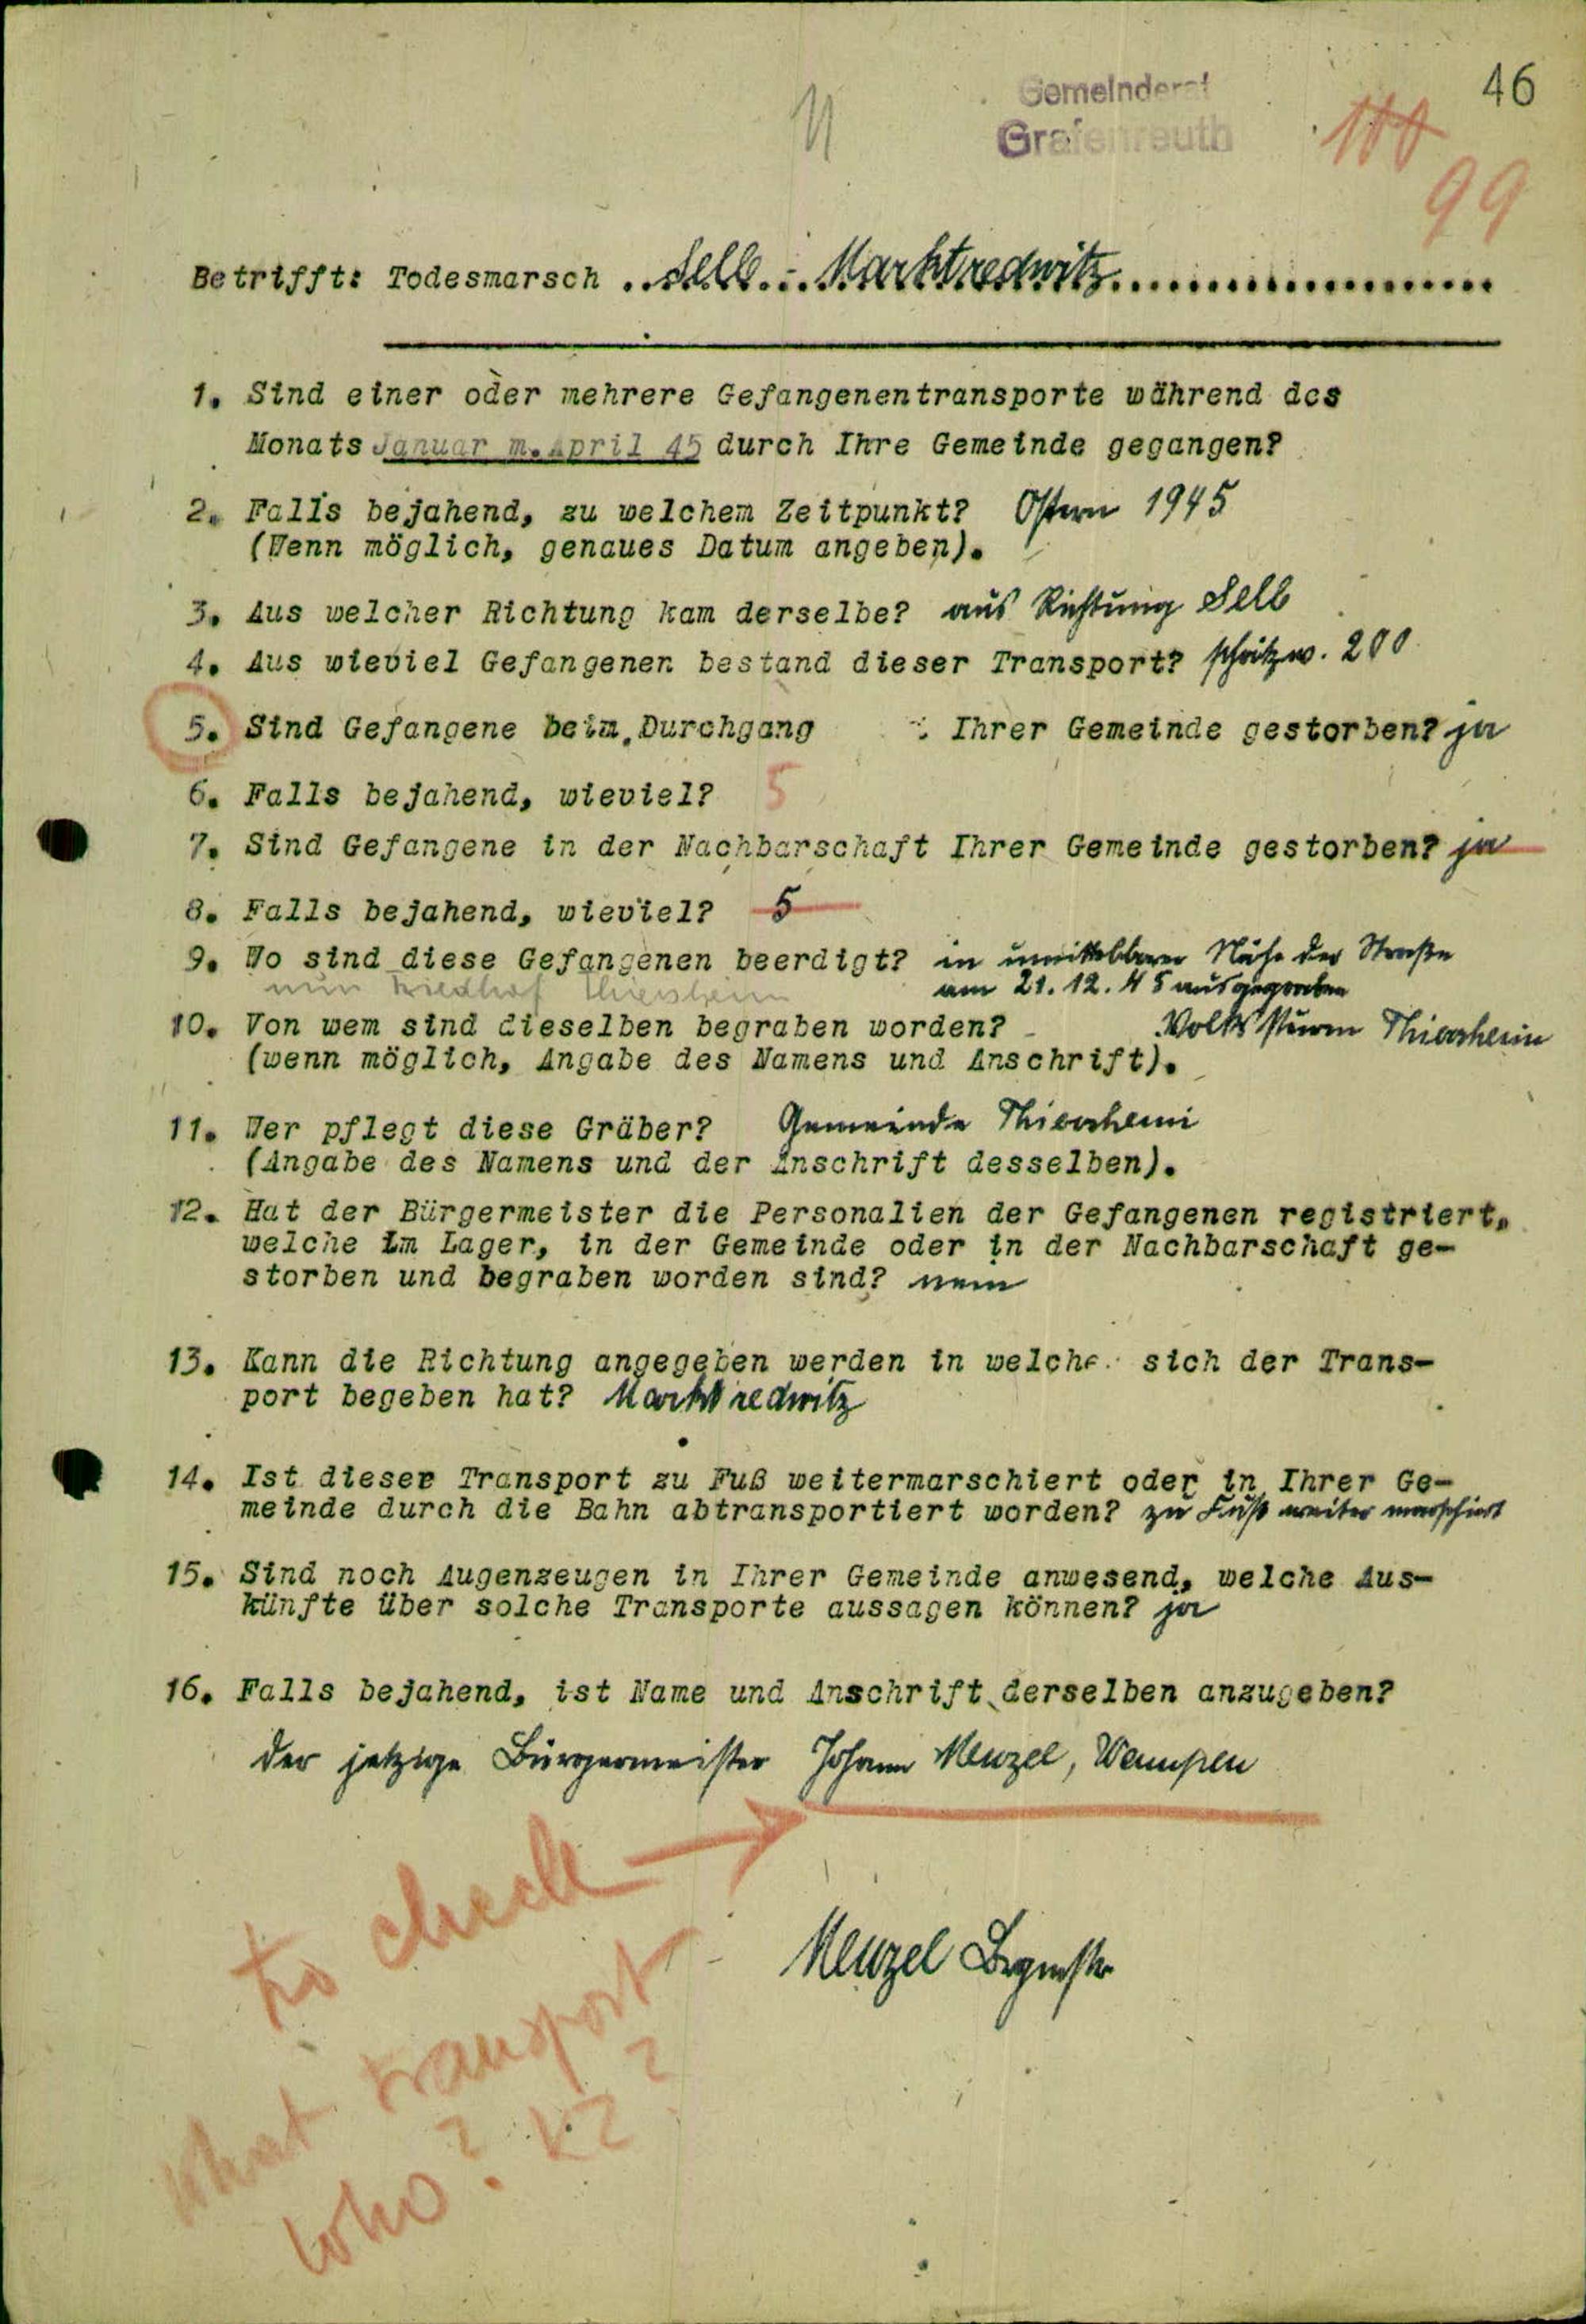 46
Gemeinderat
Grafenreuth
100
99
Betrifft: Todesmarsch ..Selb...-.Marktredwitz....................
1. Sind einer oder mehrere Gefangenentransporte während des
Monats Januar m. April 45 durch Ihre Gemeinde gegangen?
2. Falls bejahend, zu welchem Zeitpunkt? Ostern 1945
(Wenn möglich, genaues Datum angeben).
3. Aus welcher Richtung kam derselbe? aus Richtung Selb
4. Aus wieviel Gefangenen bestand dieser Transport? schätzw. 200
5. Sind Gefangene beim Durchgang Ihrer Gemeinde gestorben? ja
6. Falls bejahend, wieviel? 5
7. Sind Gefangene in der Nachbarschaft Ihrer Gemeinde gestorben? ja
8. Falls bejahend, wieviel? 5
9. Wo sind diese Gefangenen beerdigt? in unmittelbarer Nähe der Straße
nun Friedhof Thiersheim am 21.12.45 ausgegraben
10. Von wem sind dieselben begraben worden? Volkssturm Thiersheim
(wenn möglich, Angabe des Namens und Anschrift).
11. Wer pflegt diese Gräber? Gemeinde Thiersheim
(Angabe des Namens und der Anschrift desselben).
12. Hat der Bürgermeister die Personalien der Gefangenen registriert,
welche im Lager, in der Gemeinde oder in der Nachbarschaft ge-
storben und begraben worden sind? nein
13. Kann die Richtung angegeben werden in welche sich der Trans-
port begeben hat? Marktredwitz
14. Ist dieser Transport zu Fuß weitermarschiert oder in Ihrer Ge-
meinde durch die Bahn abtransportiert worden? zu Fuß weiter marschiert
15. Sind noch Augenzeugen in Ihrer Gemeinde anwesend, welche Aus-
künfte über solche Transporte aussagen können? ja
16. Falls bejahend, ist Name und Anschrift derselben anzugeben?
der jetzige Bürgermeister Johann Menzel, Wampen
to check
Menzel Brgmstr
what transport
who? KZ?